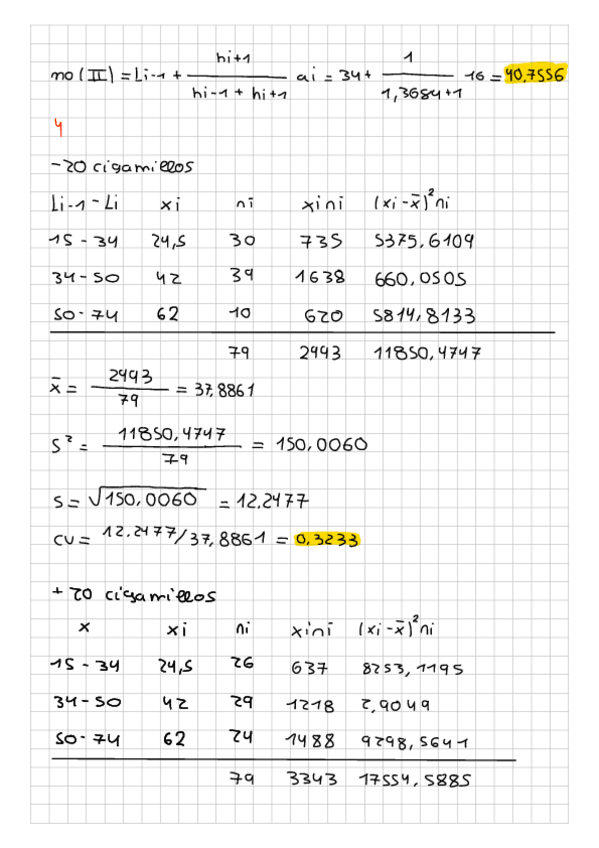 mo (II) = Li-1 + hi+1 / hi-1 + hi+1 ai = 34 + 1 / 1,3684+1 16 = 40,7556
4
-20 cigarrillos
Li-1 - Li xi ni xini (xi - x̄)² ni
15 - 34 24,5 30 735 5375,6109
34 - 50 42 39 1638 660,0505
50 - 74 62 10 620 5814,8133
79 2493 11850,4747
x̄ = 2493 / 79 = 37,8861
S² = 11850,4747 / 79 = 150,0060
S = √150,0060 = 12,2477
CV = 12,2477/37,8861 = 0,3233
+ 20 cigarrillos
x xi ni xini (xi - x̄)² ni
15 - 34 24,5 26 637 8253,1195
34 - 50 42 29 1218 2,9049
50 - 74 62 24 1488 9298,5641
79 3343 17554,5885